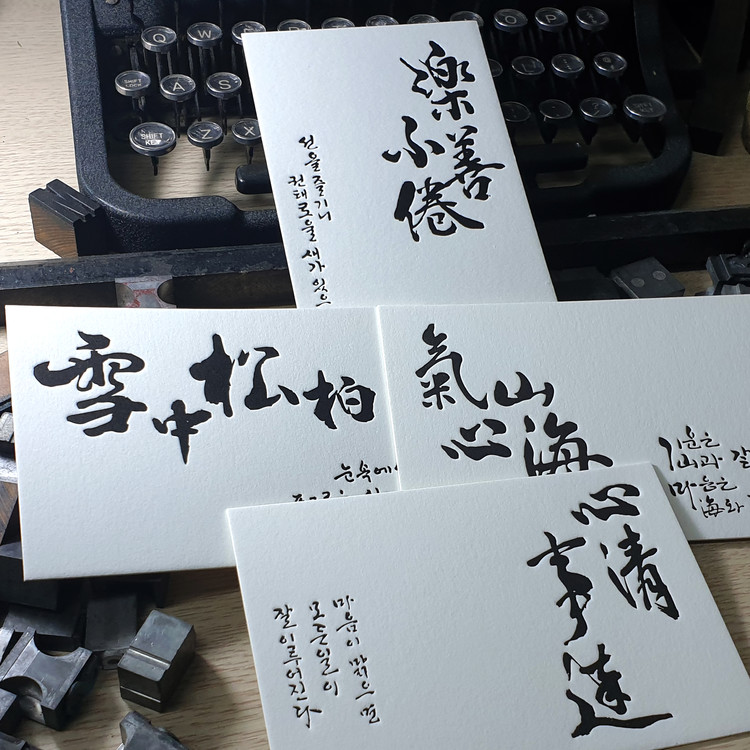 Q W O P
SHIFT LOCK A S
SHIFT KEY Z X
樂善
不倦
선을 즐기니
권태로울 새가 있으
雪中松柏
눈속에
氣山
心海
기운은
山과 같
마음은
海와
心清
事達
마음이 맑으면
모든일이
잘이루어진다